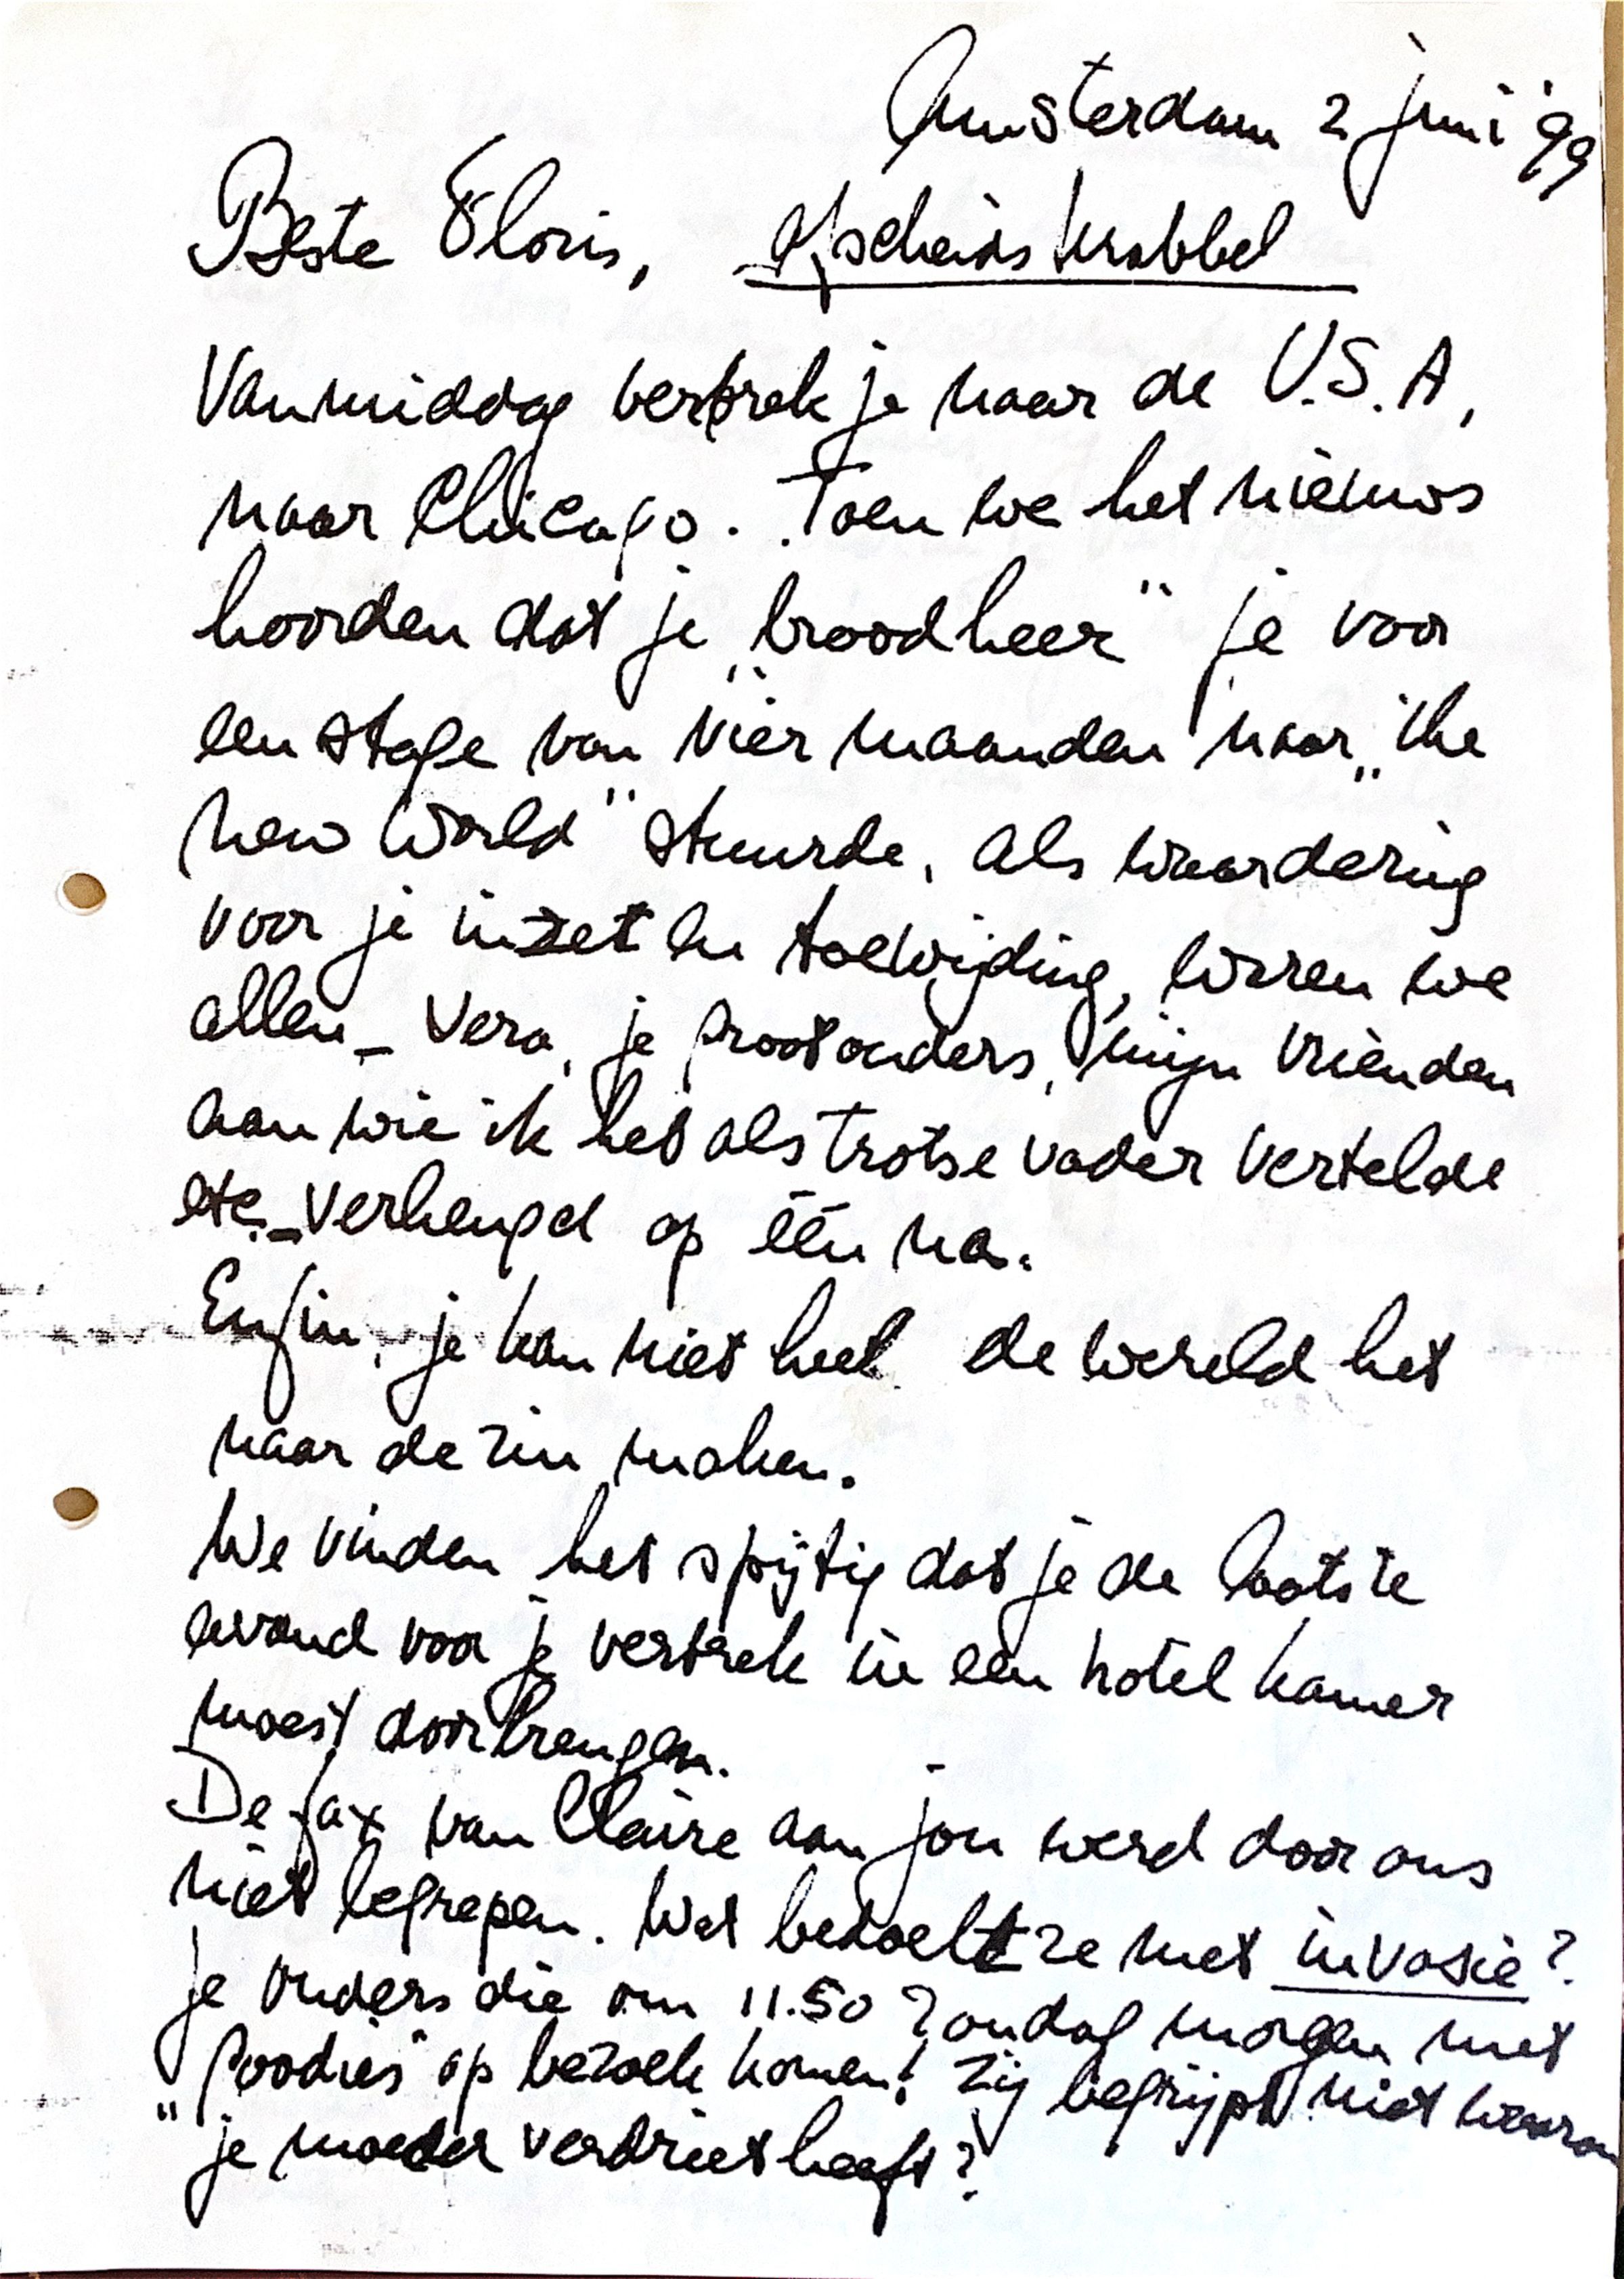 Amsterdam 2 juni '99
Beste Floris, afscheidskrabbel
Vanmiddag vertrek je naar de U.S.A,
naar Chicago. Toen we het nieuws
hoorden dat je „broodheer" je voor
een stage van vier maanden naar „the
new world" stuurde, als waardering
voor je inzet en toewijding, waren we
allen - Vera, je grootouders, mijn vrienden
aan wie ik het als trotse vader vertelde
etc. - verheugd op één na.
Enfin, je kan niet heel de wereld het
naar de zin maken.
We vinden het spijtig dat je de laatste
avond voor je vertrek in een hotel kamer
moest doorbrengen.
De fax van Claire aan jou werd door ons
niet begrepen. Wat bedoelt ze met invasie?
Je ouders die om 11.50 zondag morgen met
„goodies" op bezoek komen! Zij begrijpt niet waarom
je moeder verdriet heeft?